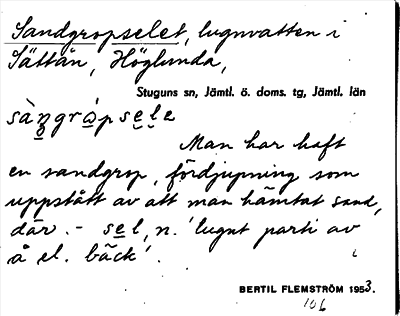 Sandgropselet, lugnvatten i
Sättån, Höglunda,
Stuguns sn, Jämtl. ö. doms. tg, Jämtl. län
Man har haft
en sandgrop, fördjupning som
uppstått av att man hämtat sand,
där. - sel, n. 'lugnt parti av
å el. bäck'.
BERTIL FLEMSTRÖM 1953.
106